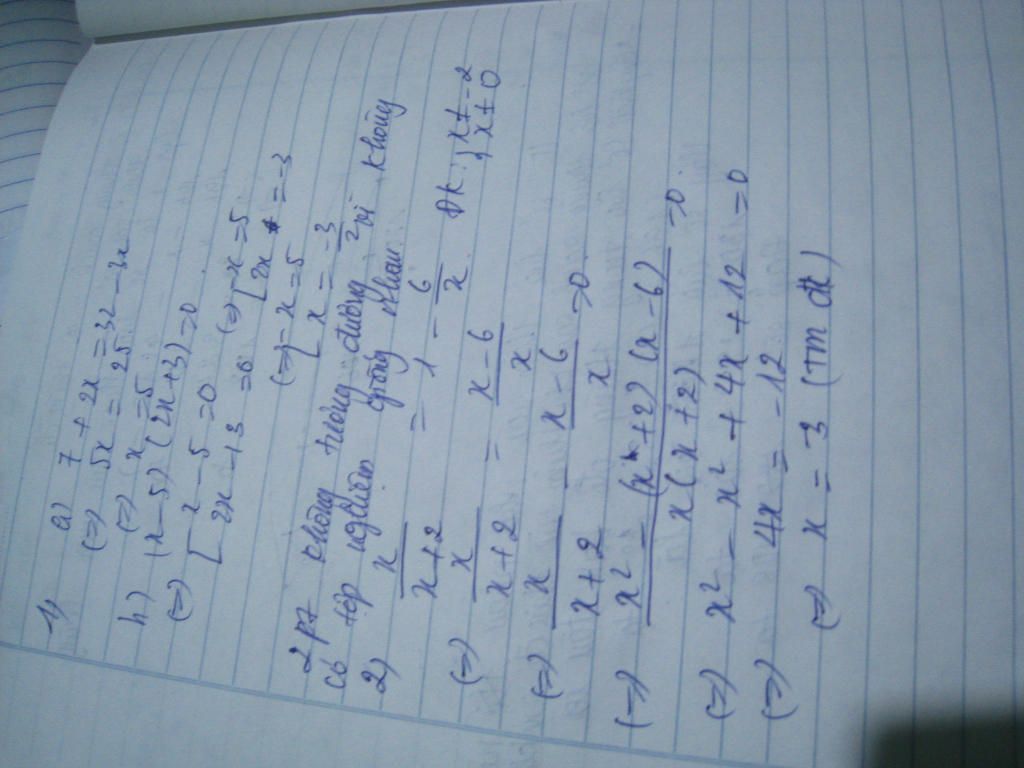 1) a) 7 + 2x = 32 - 3x
(=) 5x = 25
(=) x = 5
b) (x - 5) (2x + 3) = 0
(=) [ x - 5 = 0
2x + 3 = 0 (=) [ x = 5
2x = -3
(=) [ x = 5
x = -3/2
2 pt không tương đương vì không
có tập nghiệm giống nhau
2) x/(x+2) = 1 - 6/x ĐK: { x ≠ -2
x ≠ 0
(=) x/(x+2) = (x-6)/x
(=) x/(x+2) - (x-6)/x = 0
(=) (x² - (x+2)(x-6))/(x(x+2)) = 0
(=) x² - x² + 4x + 12 = 0
(=) 4x = -12
(=) x = -3 (tm đk)